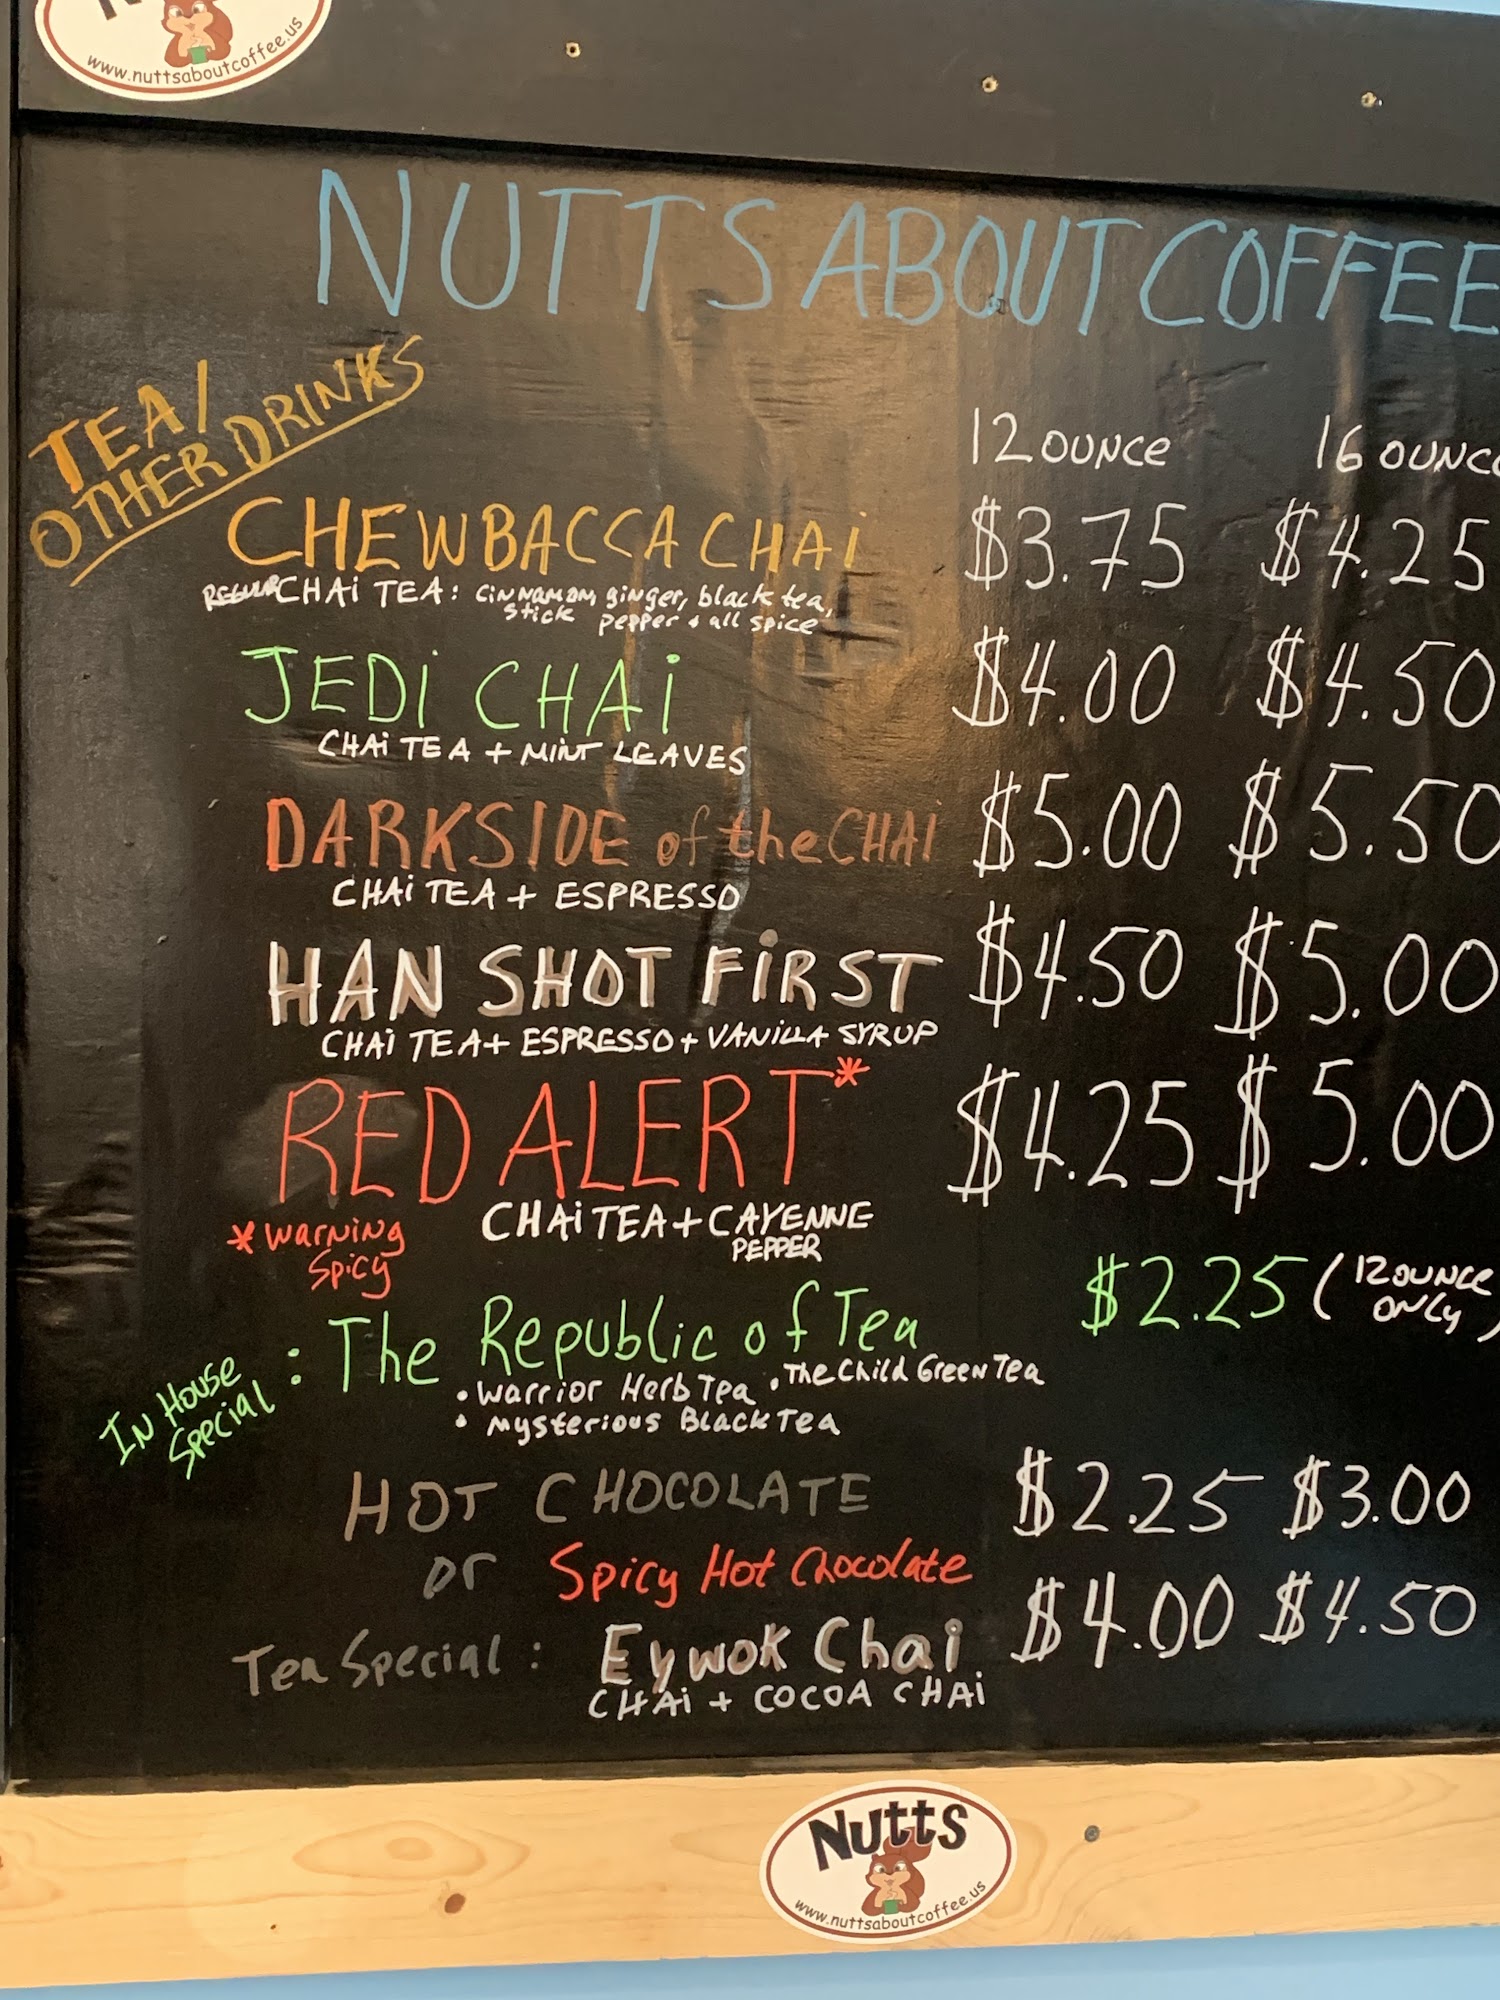 www.nuttsaboutcoffee.us
NUTTS ABOUT COFFEE
TEA/
OTHER DRINKS
12 OUNCE 16 OUNCE
CHEWBACCA CHAi $3.75 $4.25
REGULAR CHAi TEA: cinnamon, ginger, black tea,
stick pepper + all spice
JEDi CHAi $4.00 $4.50
CHAi TEA + MINT LEAVES
DARKSIDE of the CHAI $5.00 $5.50
CHAi TEA + ESPRESSO
HAN SHOT FiRST $4.50 $5.00
CHAi TEA + ESPRESSO + VANiLLA SYRUP
RED ALERT* $4.25 $5.00
* Warning
Spicy
CHAi TEA + CAYENNE
PEPPER
In House
Special
: The Republic of Tea $2.25 (12 OUNCE
ONLY)
• Warrior Herb Tea • The Child Green Tea
• Mysterious Black Tea
HOT CHOCOLATE $2.25 $3.00
or Spicy Hot Chocolate
Tea Special: Eywok Chai $4.00 $4.50
CHAi + COCOA CHAi
Nutts
www.nuttsaboutcoffee.us